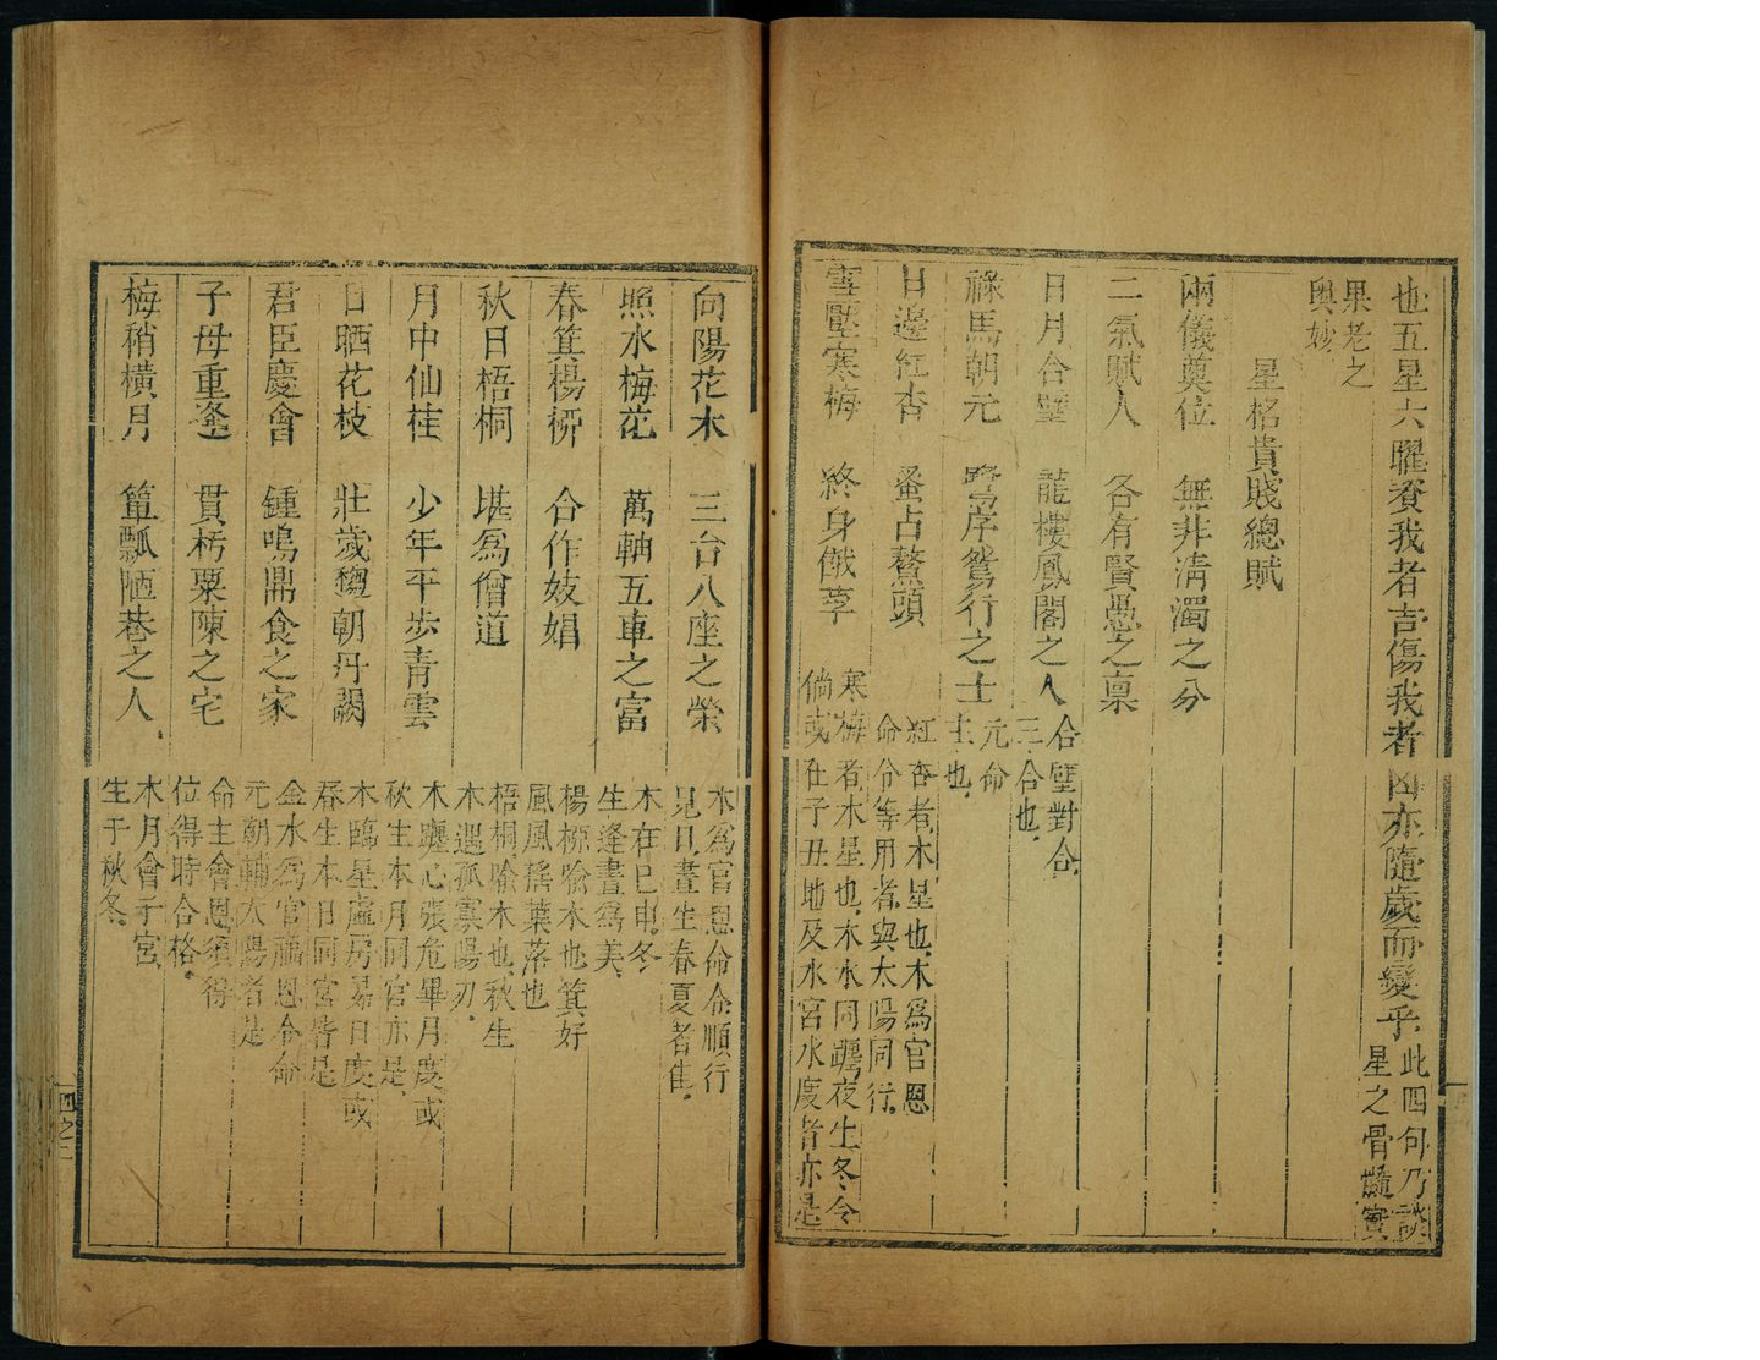 也五星六曜賚我者吉傷我者凶亦隨歲而變乎此四句乃談
星之骨髓實
果老之
奧妙
星格貴賤總賦
兩儀奠位　無非清濁之分
二氣賦人　各有賢愚之稟
日月合璧　龍樓鳳閣之人合璧對合
三合也
祿馬朝元　鷺序鴛行之士元命
主也
日邊紅杏　蚤占鰲頭紅杏者木星也木爲官恩
命令等用者與太陽同行
雪壓寒梅　終身餓莩寒梅者木星也木水同躔夜生冬令
倘或在子丑地及水宮水度者亦是
向陽花木　三台八座之榮木爲官恩命令順行
見日晝生春夏者佳
照水梅花　萬軸五車之富木在巳申冬
生逢晝爲美
春箕楊栁　合作妓娼楊栁喻木也箕好
風風搖葉落也
秋日梧桐　堪爲僧道梧桐喻木也秋生
木遇孤寡陽刃
月中仙桂　少年平步青雲木躔心張危畢月度或
秋生本月同宮亦是
日晒花枝　壯歲趨朝丹闕木臨星虛房昴日度或
春生本日同宮皆是
君臣慶會　鍾鳴鼎食之家金水爲官福恩令命
元朝輔太陽者是
子母重逢　貫朽粟陳之宅命主會恩須得
位得時合格
梅稍橫月　簞瓢陋巷之人木月會子宮
生于秋冬
四之二